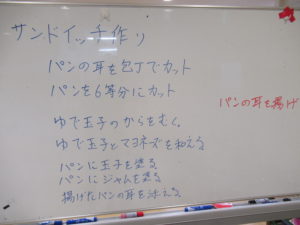 サンドイッチ作り
パンの耳を包丁でカット
パンを6等分にカット
ゆで玉子のからをむく。
ゆで玉子とマヨネーズを和える
パンに玉子を塗る
パンにジャムを塗る
揚げたパンの耳を添える
パンの耳を揚げ